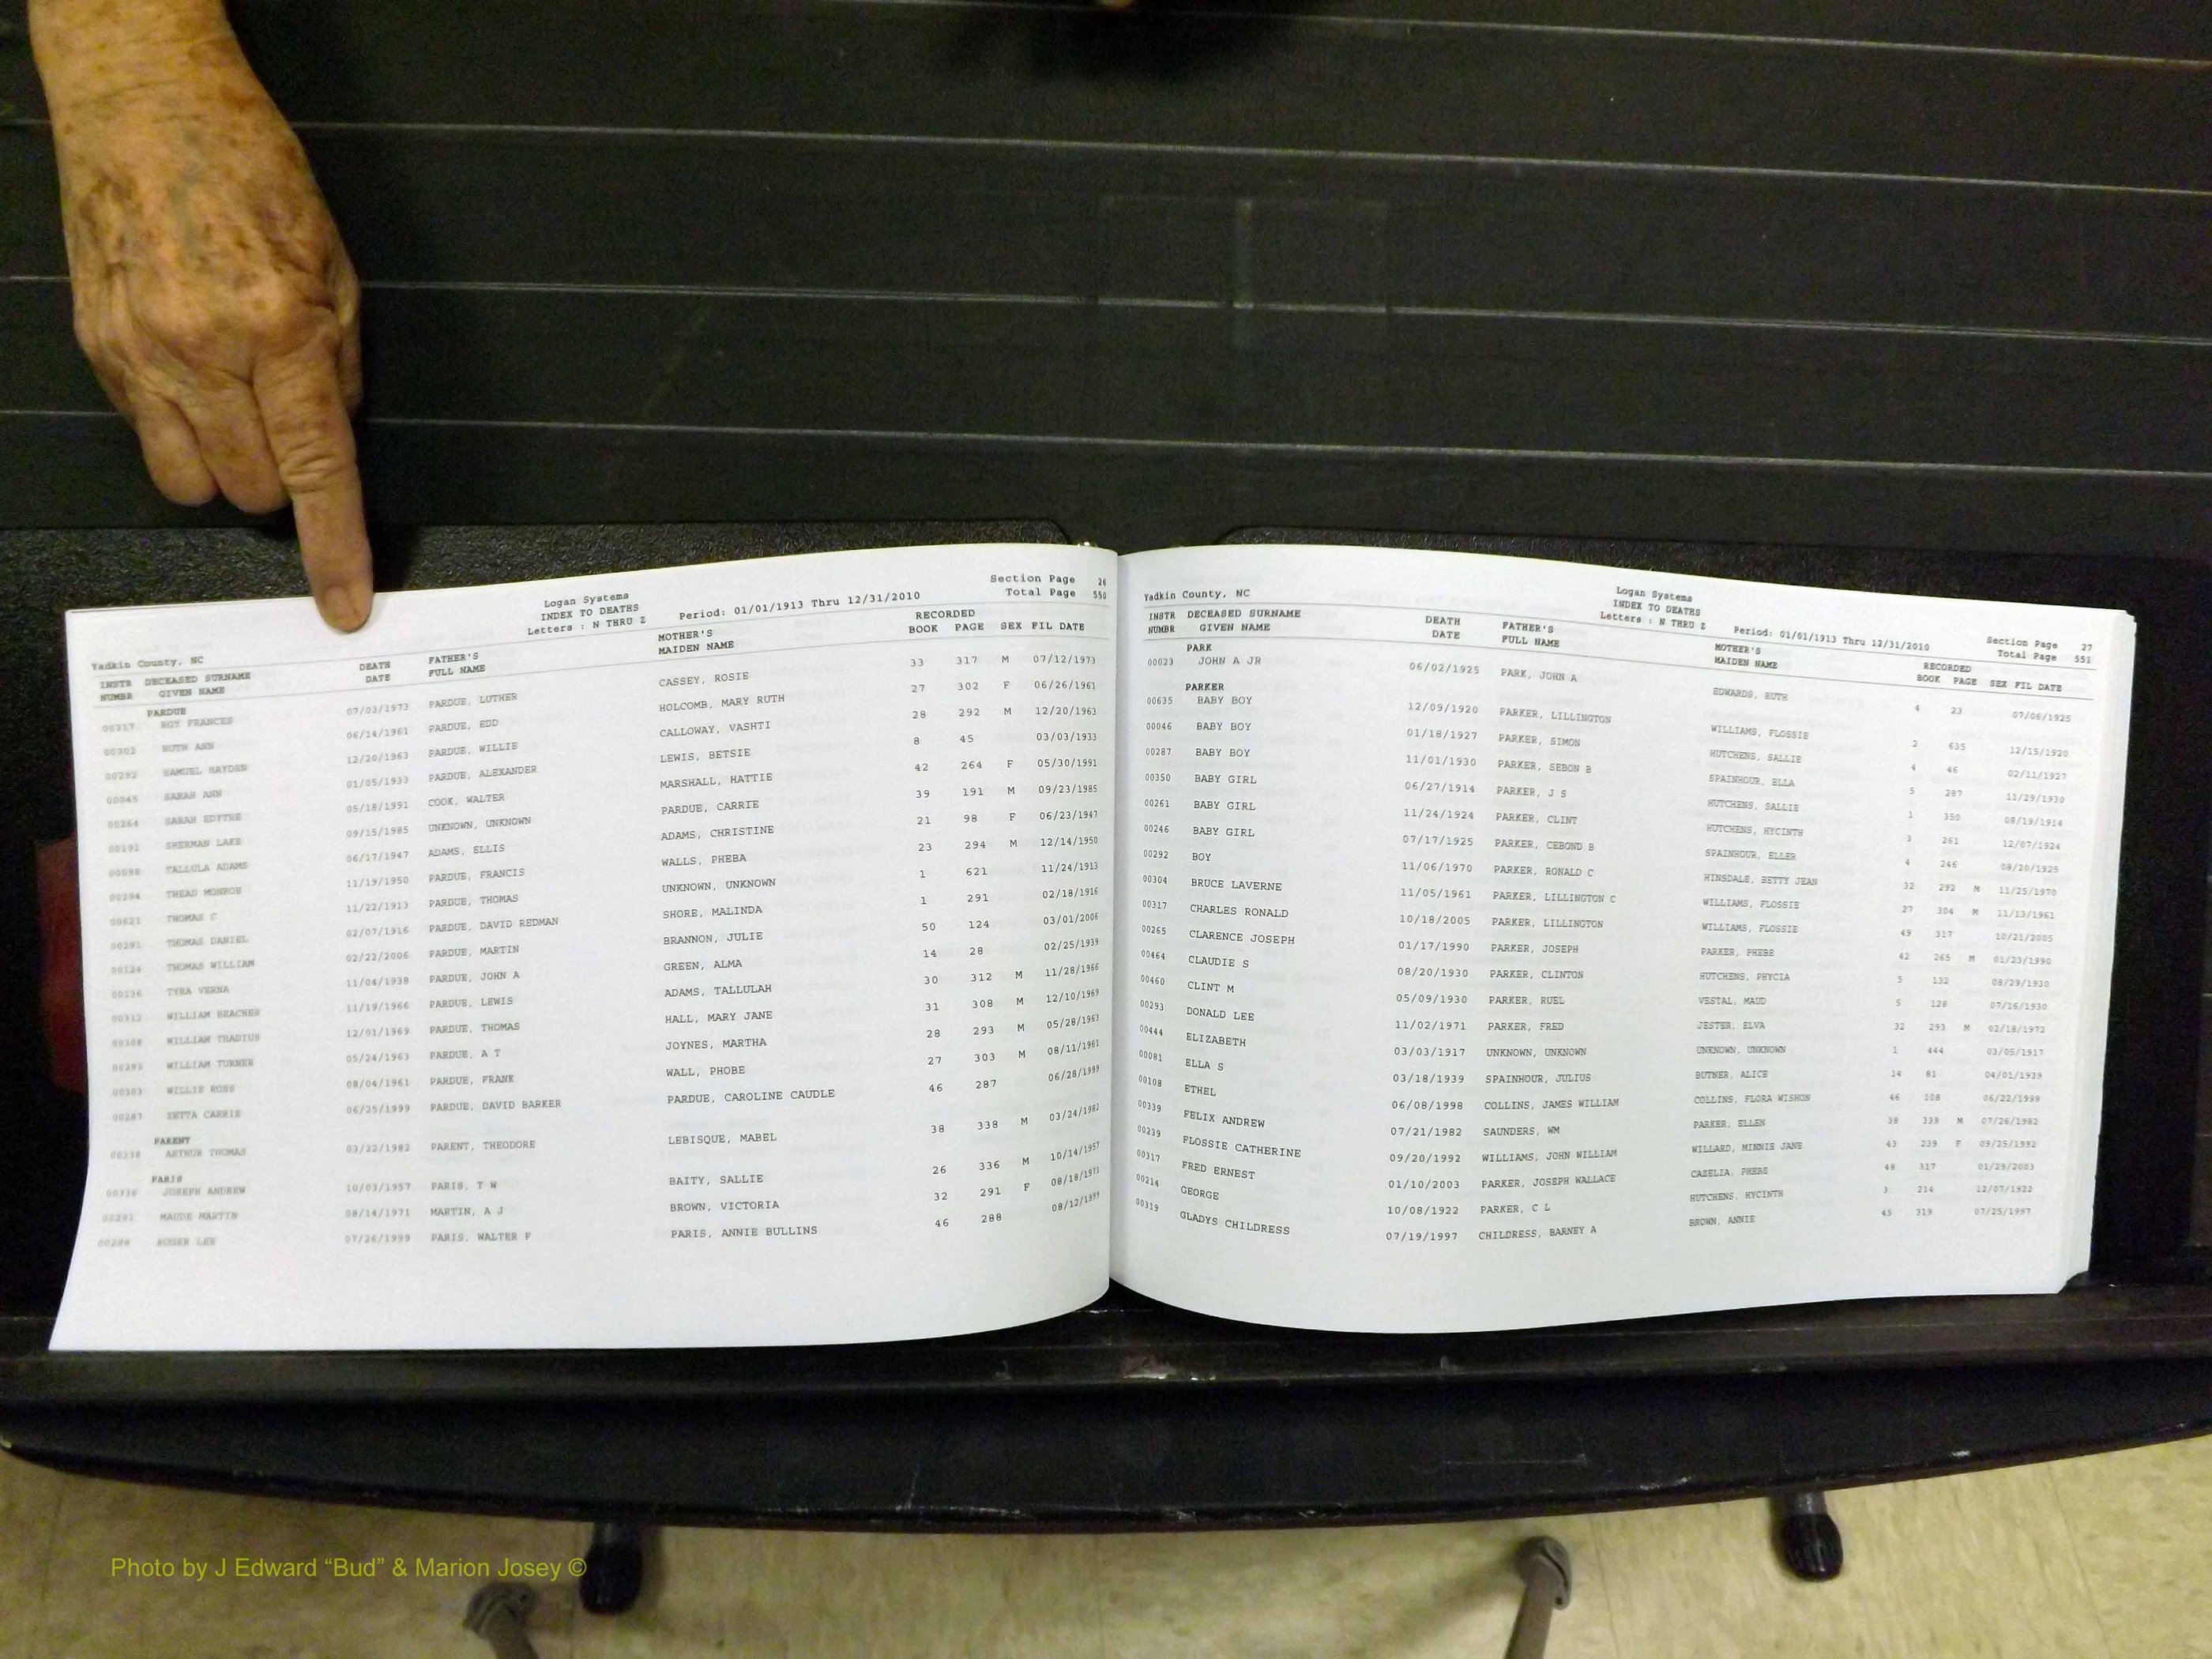 Section Page 26
Logan Systems Total Page 550
INDEX TO DEATHS
Letters : N THRU Z Period: 01/01/1913 Thru 12/31/2010
Yadkin County, NC
INSTR DECEASED SURNAME DEATH FATHER'S MOTHER'S RECORDED
NUMBR GIVEN NAME DATE FULL NAME MAIDEN NAME BOOK PAGE SEX FIL DATE
PARDUE
00317 ROY FRANCES 07/03/1973 PARDUE, LUTHER CASSEY, ROSIE 33 317 M 07/12/1973
00302 RUTH ANN 06/14/1961 PARDUE, EDD HOLCOMB, MARY RUTH 27 302 F 06/26/1961
00292 SAMUEL HAYDEN 12/20/1963 PARDUE, WILLIE CALLOWAY, VASHTI 28 292 M 12/20/1963
00045 SARAH ANN 01/05/1933 PARDUE, ALEXANDER LEWIS, BETSIE 8 45 03/03/1933
00264 SARAH EDYTHE 05/18/1991 COOK, WALTER MARSHALL, HATTIE 42 264 F 05/30/1991
00191 SHERMAN LAKE 09/15/1985 UNKNOWN, UNKNOWN PARDUE, CARRIE 39 191 M 09/23/1985
00098 TALLULA ADAMS 06/17/1947 ADAMS, ELLIS ADAMS, CHRISTINE 21 98 F 06/23/1947
00294 THEAD MONROE 11/19/1950 PARDUE, FRANCIS WALLS, PHEBA 23 294 M 12/14/1950
00621 THOMAS C 11/22/1913 PARDUE, THOMAS UNKNOWN, UNKNOWN 1 621 11/24/1913
00291 THOMAS DANIEL 02/07/1916 PARDUE, DAVID REDMAN SHORE, MALINDA 1 291 02/18/1916
00124 THOMAS WILLIAM 02/22/2006 PARDUE, MARTIN BRANNON, JULIE 50 124 03/01/2006
00136 TYRA VERNA 11/04/1938 PARDUE, JOHN A GREEN, ALMA 14 28 02/25/1939
00312 WILLIAM BEACHER 11/19/1966 PARDUE, LEWIS ADAMS, TALLULAH 30 312 M 11/28/1966
00308 WILLIAM THADIUS 12/01/1969 PARDUE, THOMAS HALL, MARY JANE 31 308 M 12/10/1969
00293 WILLIAM TURNER 05/24/1963 PARDUE, A T JOYNES, MARTHA 28 293 M 05/28/1963
00303 WILLIE ROSS 08/04/1961 PARDUE, FRANK WALL, PHOBE 27 303 M 08/11/1961
00287 ZETTA CARRIE 06/25/1999 PARDUE, DAVID BARKER PARDUE, CAROLINE CAUDLE 46 287 06/28/1999
PARENT
00338 ARTHUR THOMAS 03/22/1982 PARENT, THEODORE LEBISQUE, MABEL 38 338 M 03/24/1982
PARIS
00336 JOSEPH ANDREW 10/03/1957 PARIS, T W BAITY, SALLIE 26 336 M 10/14/1957
00291 MAUDE MARTIN 08/14/1971 MARTIN, A J BROWN, VICTORIA 32 291 F 08/18/1971
00288 ROGER LEE 07/26/1999 PARIS, WALTER F PARIS, ANNIE BULLINS 46 288 08/12/1999
Yadkin County, NC Logan Systems Section Page 27
INDEX TO DEATHS Total Page 551
Letters : N THRU Z Period: 01/01/1913 Thru 12/31/2010
INSTR DECEASED SURNAME DEATH FATHER'S MOTHER'S RECORDED
NUMBR GIVEN NAME DATE FULL NAME MAIDEN NAME BOOK PAGE SEX FIL DATE
PARK
00023 JOHN A JR 06/02/1925 PARK, JOHN A EDWARDS, RUTH 4 23 07/06/1925
PARKER
00635 BABY BOY 12/09/1920 PARKER, LILLINGTON WILLIAMS, FLOSSIE 2 635 12/15/1920
00046 BABY BOY 01/18/1927 PARKER, SIMON HUTCHENS, SALLIE 4 46 02/11/1927
00287 BABY BOY 11/01/1930 PARKER, SEBON B SPAINHOUR, ELLA 5 287 11/29/1930
00350 BABY GIRL 06/27/1914 PARKER, J S HUTCHENS, SALLIE 1 350 08/19/1914
00261 BABY GIRL 11/24/1924 PARKER, CLINT HUTCHENS, HYCINTH 3 261 12/07/1924
00246 BABY GIRL 07/17/1925 PARKER, CEBOND B SPAINHOUR, ELLER 4 246 08/20/1925
00292 BOY 11/06/1970 PARKER, RONALD C HINSDALE, BETTY JEAN 32 292 M 11/25/1970
00304 BRUCE LAVERNE 11/05/1961 PARKER, LILLINGTON C WILLIAMS, FLOSSIE 27 304 M 11/13/1961
00317 CHARLES RONALD 10/18/2005 PARKER, LILLINGTON WILLIAMS, FLOSSIE 49 317 10/21/2005
00265 CLARENCE JOSEPH 01/17/1990 PARKER, JOSEPH PARKER, PHEBE 42 265 M 01/23/1990
00464 CLAUDIE S 08/20/1930 PARKER, CLINTON HUTCHENS, PHYCIA 5 132 08/29/1930
00460 CLINT M 05/09/1930 PARKER, RUEL VESTAL, MAUD 5 128 07/16/1930
00293 DONALD LEE 11/02/1971 PARKER, FRED JESTER, ELVA 32 293 M 02/18/1972
00444 ELIZABETH 03/03/1917 UNKNOWN, UNKNOWN UNKNOWN, UNKNOWN 1 444 03/05/1917
00081 ELLA S 03/18/1939 SPAINHOUR, JULIUS BUTNER, ALICE 14 81 04/01/1939
00108 ETHEL 06/08/1998 COLLINS, JAMES WILLIAM COLLINS, FLORA WISHON 46 108 06/22/1998
00339 FELIX ANDREW 07/21/1982 SAUNDERS, WM PARKER, ELLEN 38 339 M 07/26/1982
00239 FLOSSIE CATHERINE 09/20/1992 WILLIAMS, JOHN WILLIAM WILLARD, MINNIE JANE 43 239 F 09/25/1992
00317 FRED ERNEST 01/10/2003 PARKER, JOSEPH WALLACE CAZELIA, PHEBE 48 317 01/29/2003
00214 GEORGE 10/08/1922 PARKER, C L HUTCHENS, HYCINTH 3 214 12/07/1922
00319 GLADYS CHILDRESS 07/19/1997 CHILDRESS, BARNEY A BROWN, ANNIE 45 319 07/25/1997
Photo by J Edward “Bud” & Marion Josey ©